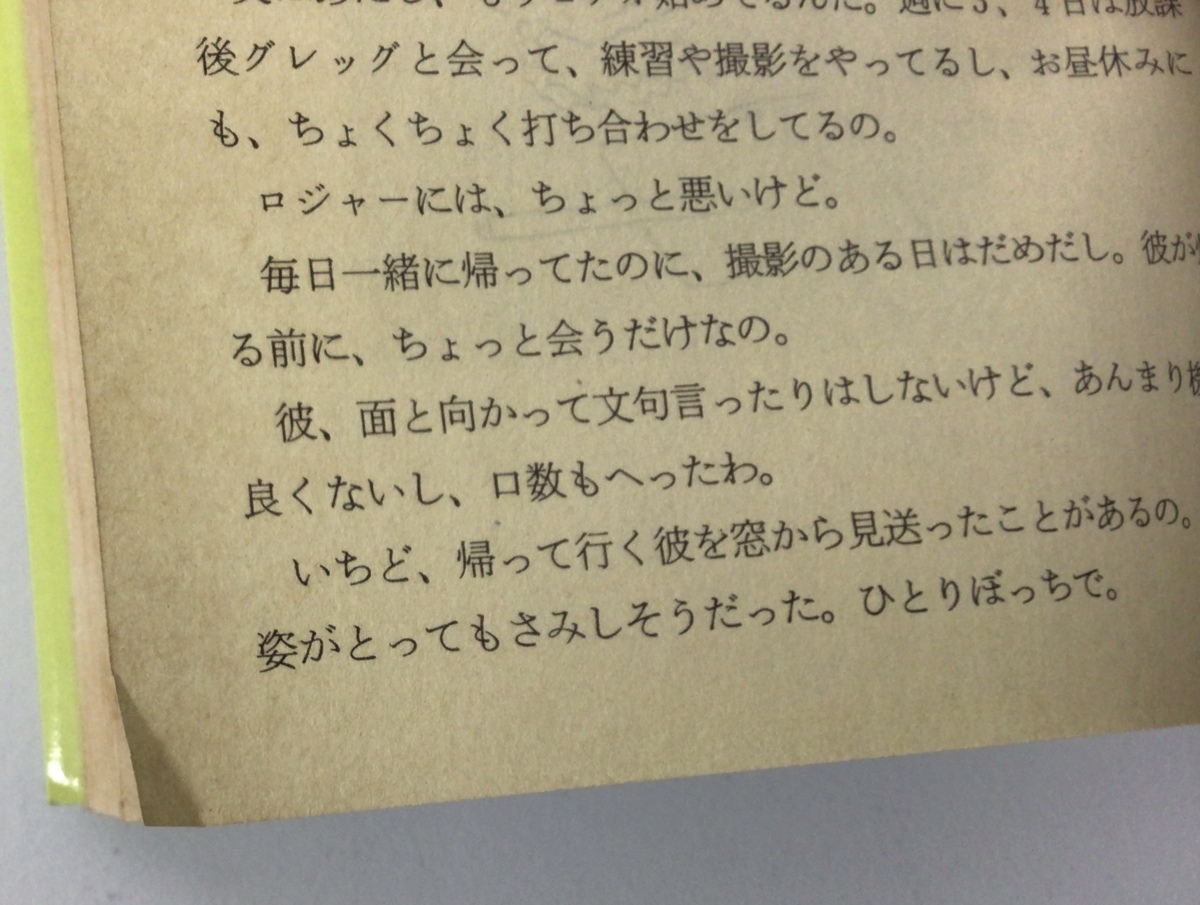 週に3、4日は放課
後グレッグと会って、練習や撮影をやってるし、お昼休みに
も、ちょくちょく打ち合わせをしてるの。
ロジャーには、ちょっと悪いけど。
毎日一緒に帰ってたのに、撮影のある日はだめだし。彼が
る前に、ちょっと会うだけなの。
彼、面と向かって文句言ったりはしないけど、あんまり機
良くないし、口数もへったわ。
いちど、帰って行く彼を窓から見送ったことがあるの。
姿がとってもさみしそうだった。ひとりぼっちで。